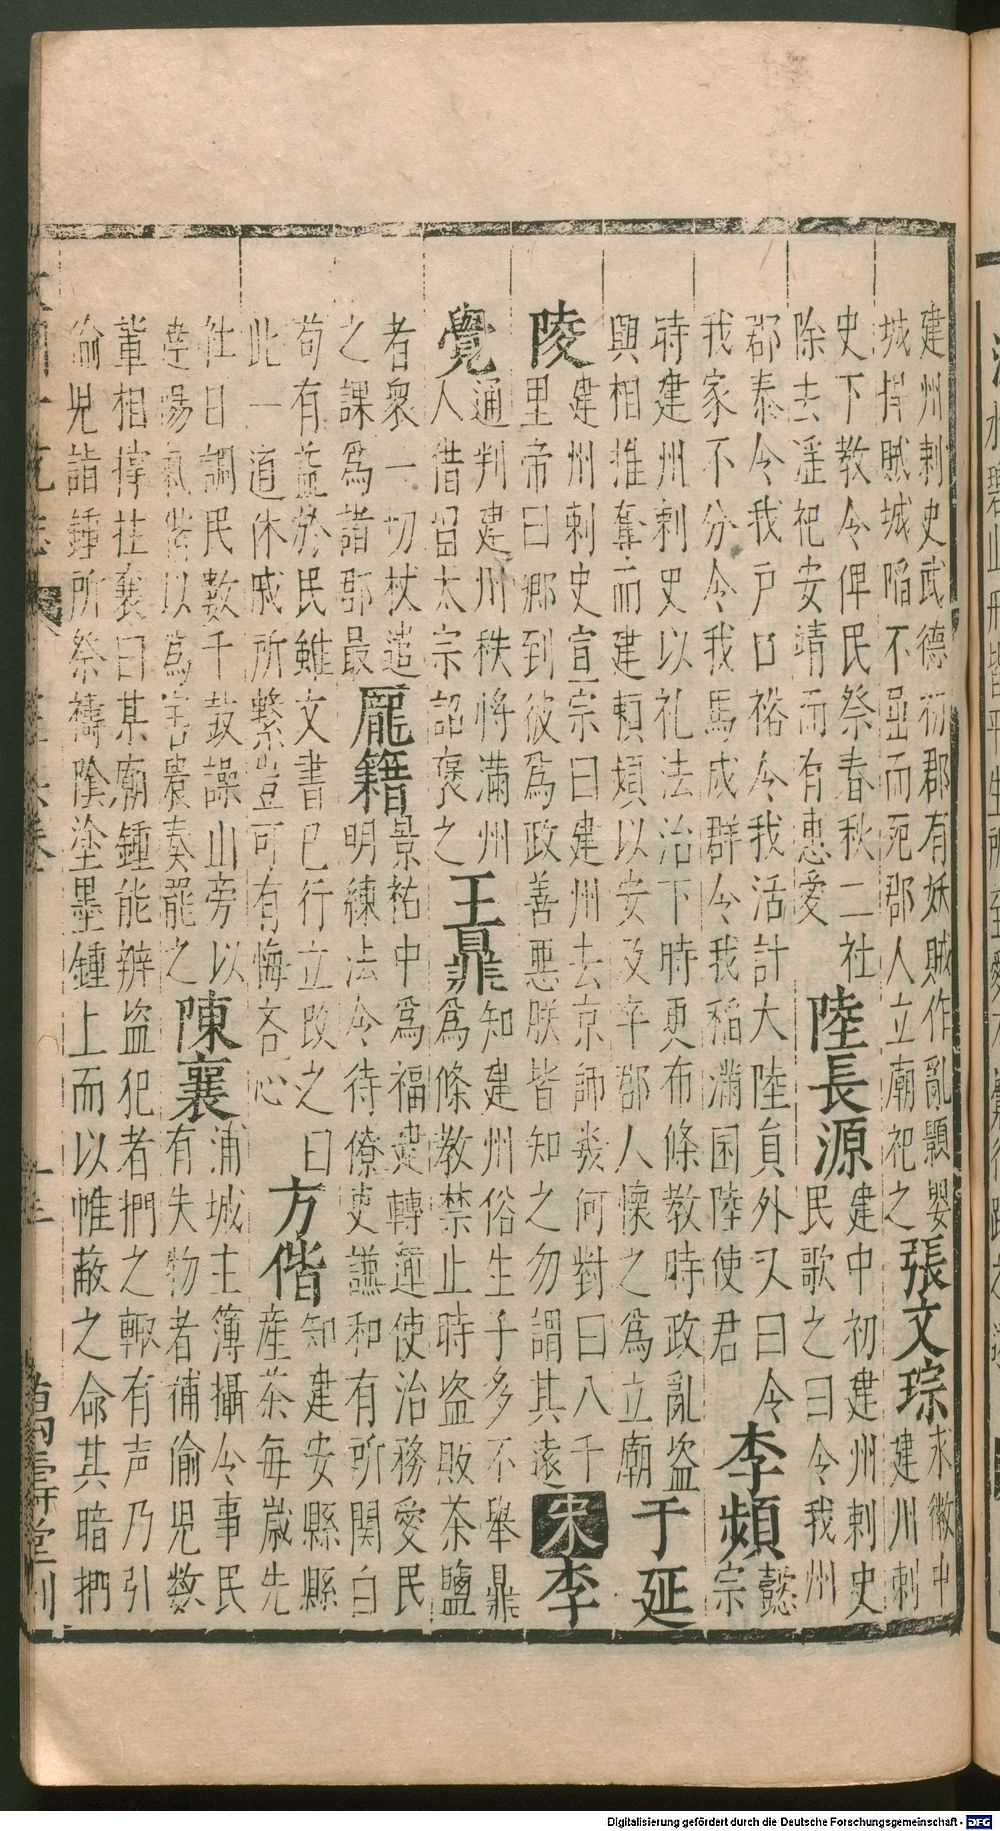 建州刺史武德初郡有妖賊作亂顯嬰
城捍賊城陷不屈而死郡人立廟祀之
張文琮
永徽中
建川刺
史下教令俾民祭春秋二社
除去淫祀安靖而有惠愛
陸長源
建中初建州刺史
民歌之曰令我州
郡泰令我戶口裕令我活計大陸員外又曰令
我家不分令我馬成群令我稻滿囷陸使君
李頻
懿
宗
時建州刺史以礼法治下時更布條教時政亂盜
興相推奪而建賴頻以安及卒郡人懷之爲立廟
于延
陵
建州刺史宣宗曰建州去京師幾何對曰八千
里帝曰鄉到彼爲政善惡朕皆知之勿謂其遠
宋
李
覺
通判建州秩将滿州
人借留太宗詔褒之
王鼎
知建州俗生子多不舉鼎
爲條教禁止時盜販茶鹽
者衆一切杖遣
之課爲諸郡最
龎籍
景祐中爲福建轉運使治務愛民
明練法令待僚吏謙和有所関白
苟有益於民雖文書已行立改之曰
此一道休戚所繫豈可有悔吝心
方偕
知建安縣縣
產茶每歲先
社日調民數千鼓譟山旁以
達陽氣偕以爲害農奏罷之
陳襄
浦城主簿攝令事民
有失物者捕偷児数
輩相撑拄襄曰某廟鍾能辨盜犯者捫之輙有声乃引
偷児詣鍾所祭禱陰塗墨鍾上而以帷蔽之命其暗捫
萬壽堂刊
Digitalisierung gefördert durch die Deutsche Forschungsgemeinschaft - DFG